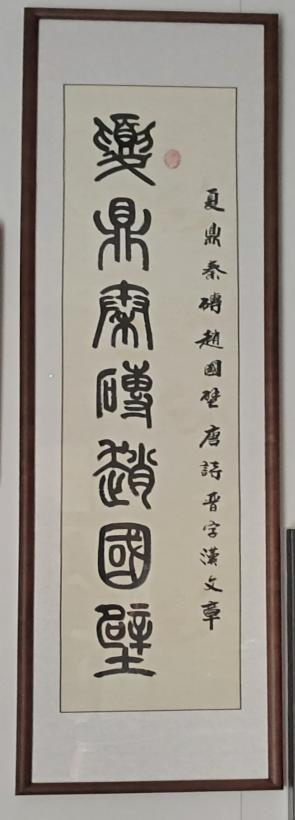 夏鼎秦磚趙國壁唐詩晉字漢文章
夏鼎秦磚趙國壁